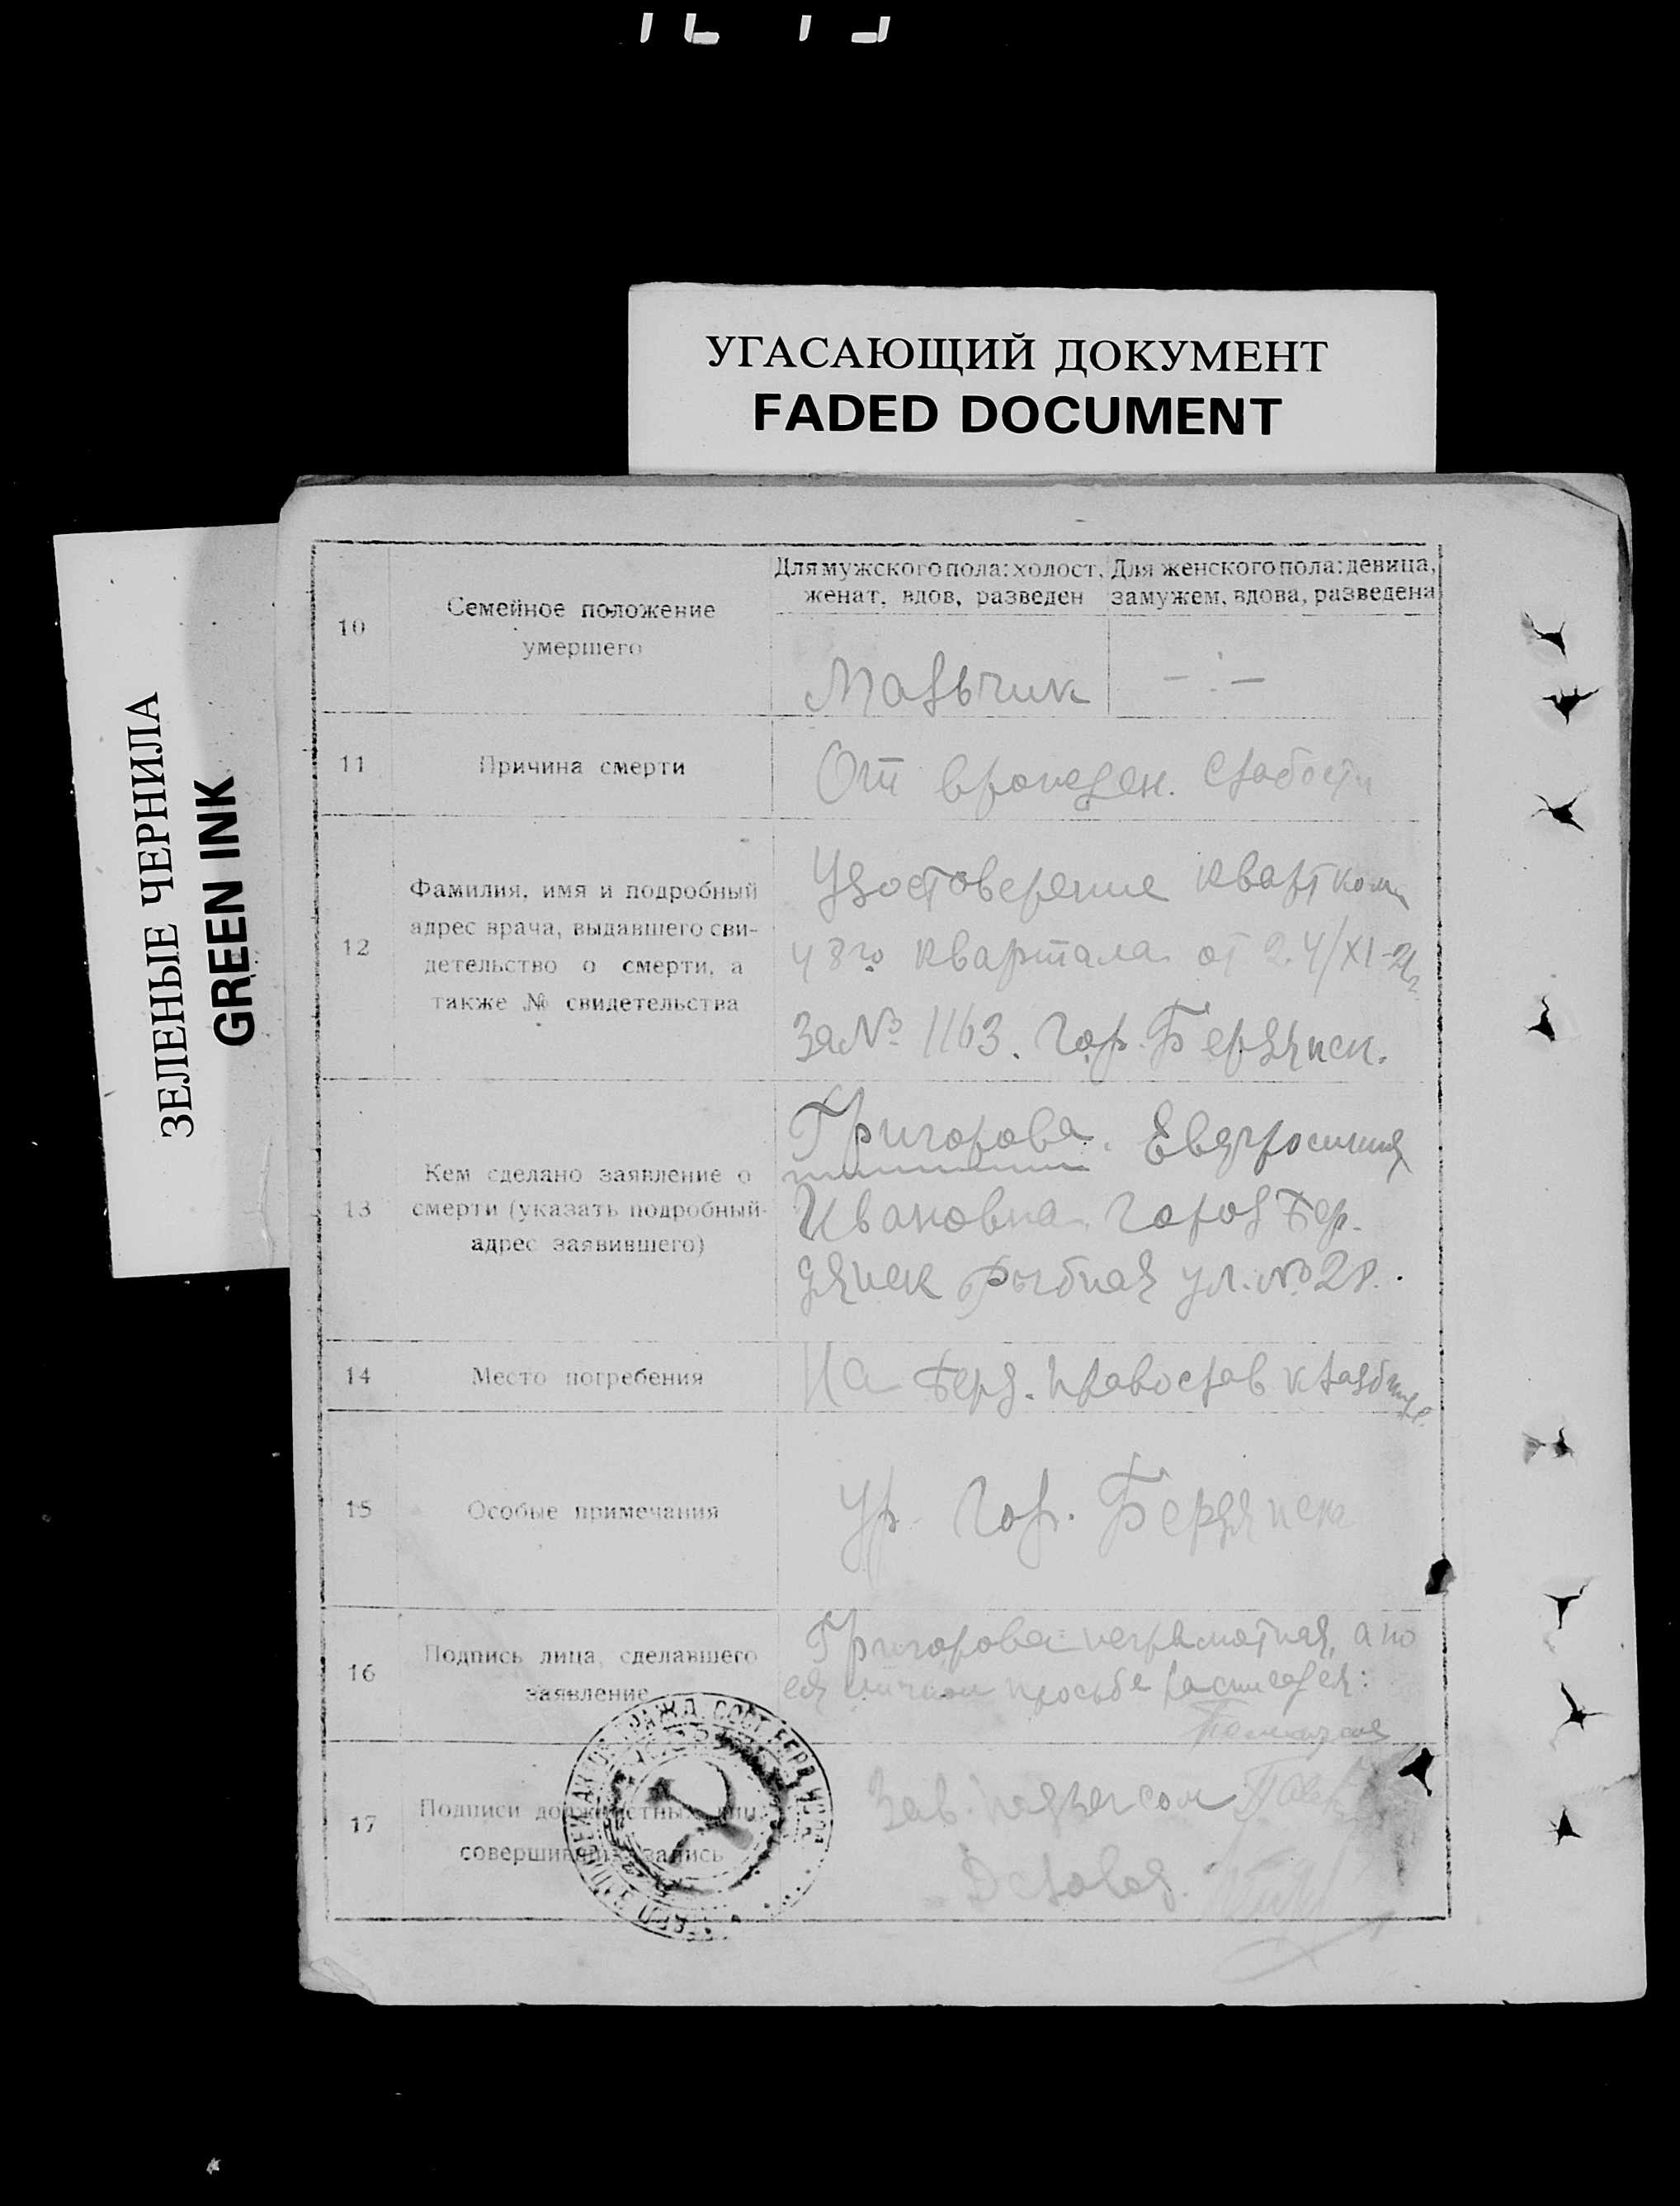 УГАСАЮЩИЙ ДОКУМЕНТ
FADED DOCUMENT
ЗЕЛЕНЫЕ ЧЕРНИЛА
GREEN INK
10
Семейное положение
умершего
Для мужского пола: холост,
женат, вдов, разведен
Для женского пола: девица,
замужем, вдова, разведена
Мальчик
— . —
11
Причина смерти
От врожден. слабости
12
Фамилия, имя и подробный
адрес врача, выдавшего сви-
детельство о смерти, а
также № свидетельства
Удостоверение кварткома
48го квартала от 24/XI-
За № 1163. Гор. Бердянск.
13
Кем сделано заявление о
смерти (указать подробный
адрес заявившего)
Григорова. Евдросиния
Ивановна. Город Бер-
дянск Рыбная ул. № 28.
14
Место погребения
На Берд. Православ кладбище.
15
Особые примечания
Ур. Гор. Бердянска
16
Подпись лица, сделавшего
заявление
Григорова неграмотная, а по
ея личной просьбе расписался:
17
Подписи должностных лиц,
совершивших запись
Зав. подзагсом
Деловод.